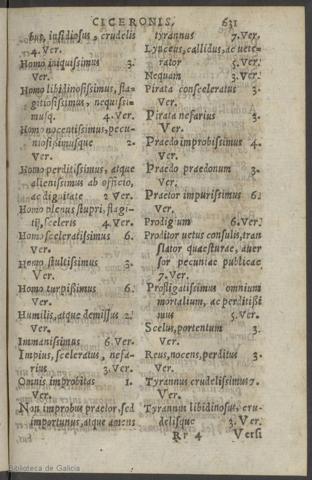 CICERONIS, 631
bus, insidiosus, crudelis
4. Ver.
Homo iniquissimus 3.
Ver.
Homo libidinosissimus, fla-
gitiosissimus, nequissi-
musq. 4. Ver.
Homo nocentissimus, pecu-
niosissimusque 2.
Ver.
Homo perditissimus, atque
alienissimus ab officio,
ac dignitate 2 Ver.
Homo plenus stupri, flagi-
tij, sceleris 4. Ver.
Homo sceleratissimus 6.
Ver.
Homo stultissimus 3.
Ver.
Homo turpissimus 6.
Ver.
Humilis, atque demissus 2.
Ver.
Immanissimus 6. Ver.
Impius, sceleratus, nefa-
rius 3. Ver.
Omnis improbitas 1.
Ver.
Non improbus praetor, sed
importunus, atque amens
tyrannus 7. Ver.
Lynceus, callidus, ac uete-
rator 5. Ver.
Nequam 3. Ver.
Pirata consceleratus 3.
Ver.
Pirata nefarius 3.
Ver.
Praedo improbissimus 4.
Ver.
Praedo praedonum 3.
Ver.
Praetor impurissimus 6.
Ver.
Prodigium 6. Ver.
Proditor uetus consulis, tran
slator quaesturae, auer
sor pecuniae publicae
7. Ver.
Profligatissimus omnium
mortalium, ac perditissi
mus 5. Ver.
Scelus, portentum 3.
Ver.
Reus, nocens, perditus 3.
Ver.
Tyrannus crudelissimus 7.
Ver.
Tyrannus libidinosus, cru-
delisque 3. Ver.
Rr 4 Versi
Biblioteca de Galicia